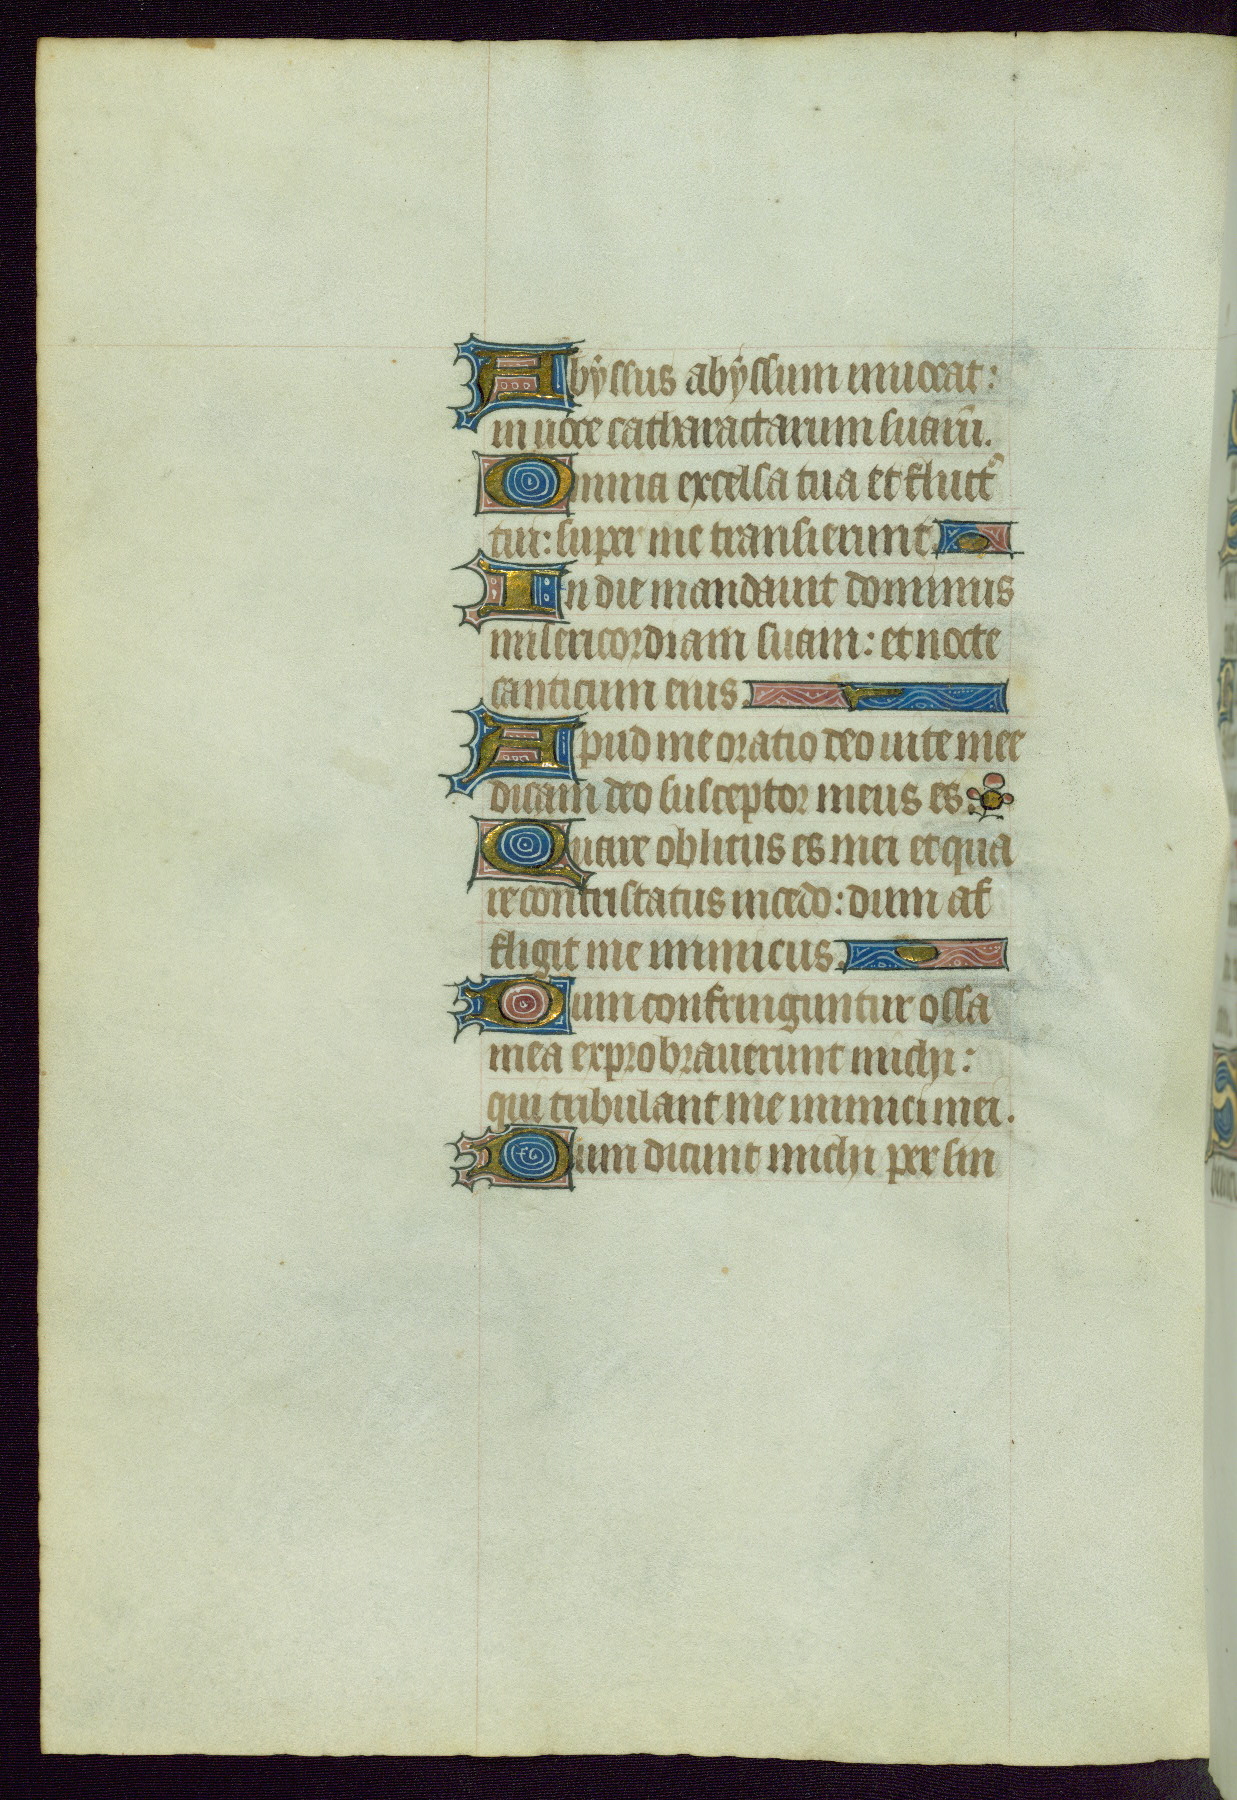 Abyssus abyssum inuocat:
in uoce catharactarum tuarũ.
Omnia excelsa tua et fluctꝰ
tui: super me transierunt.
In die mandauit dominus
misericordiam suam: et nocte
canticum eius.
Apud me oratio deo uite mee
dicam deo susceptor meus es.
Quare oblitus es mei et qua
re contristatus incedo: dum af
fligit me inimicus.
Dum confringuntur ossa
mea exprobrauerunt michi:
qui tribulant me inimici mei.
Dum dicunt michi per sin